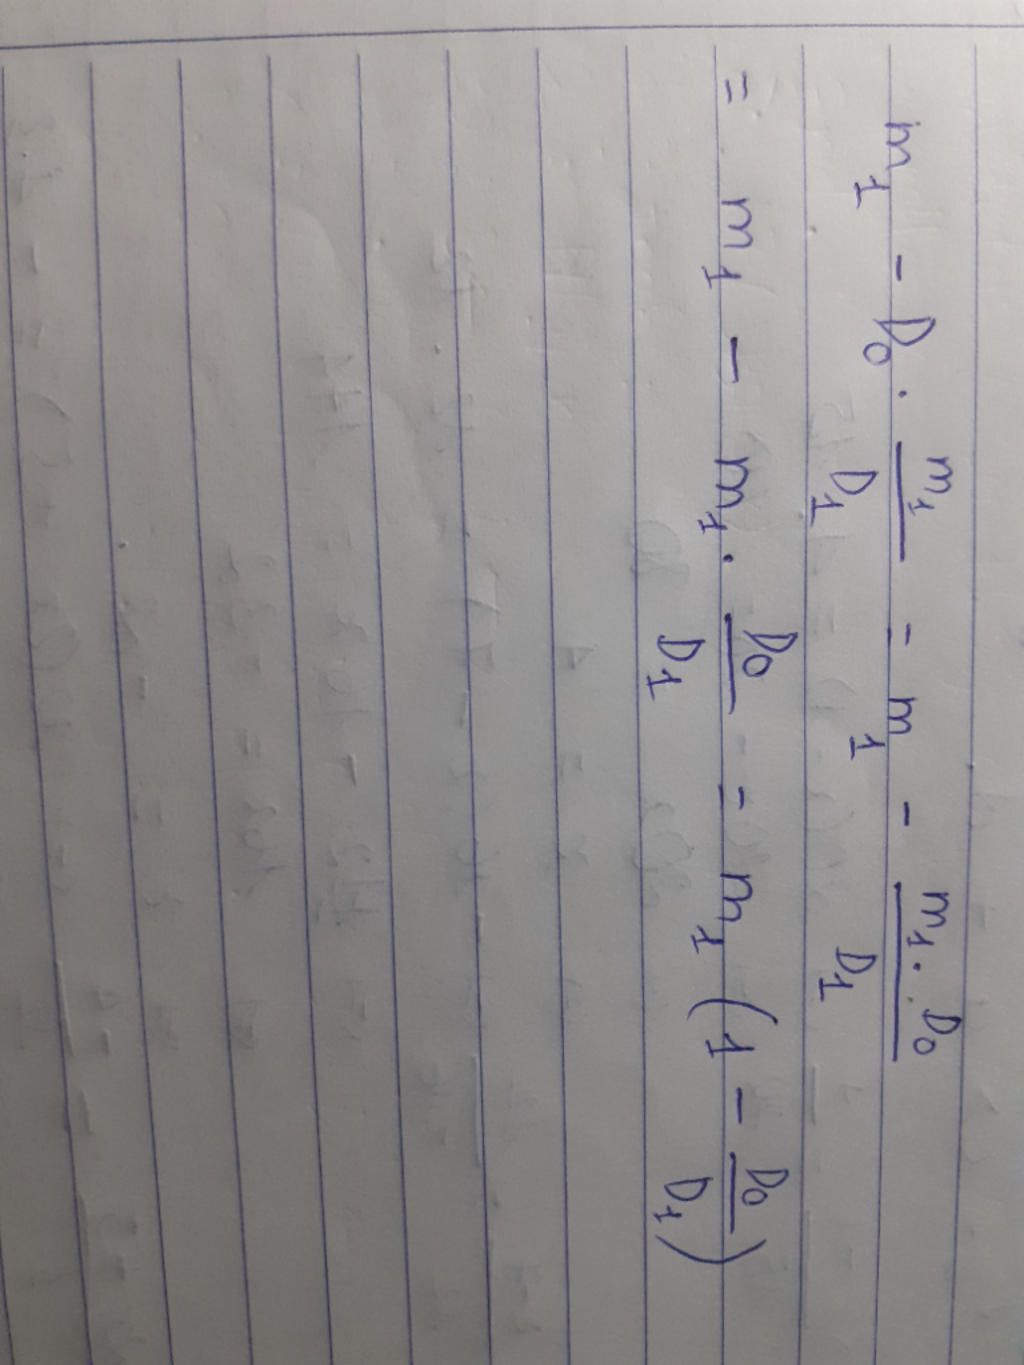 m₁ - D₀ . m₁/D₁ = m₁ - m₁ . D₀/D₁
= m₁ - m₁ . D₀/D₁ = m₁ (1 - D₀/D₁)